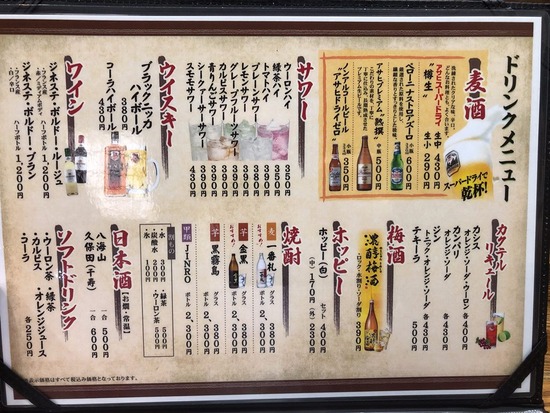 ドリンクメニュー
麦酒
アサヒスーパードライ
"樽生"
生中 430円
生小 290円
スーパードライで
乾杯!
ペローニ ナストロアズーロ
小瓶 600円
アサヒプレミアム"熟撰"
中瓶 500円
ノンアルコールビール
"アサヒドライゼロ"
小瓶 350円
サワー
ウーロンハイ 350円
緑茶ハイ 350円
トマトハイ
プレーンサワー
レモンサワー
グレープフルーツサワー
カルピスサワー
青りんごサワー
シークァーサーサワー
スモモサワー 430円
ウイスキー
ブラックニッカ
ハイボール
380円
コーラハイボール
430円
ワイン
ジネステ・ボルドー・ルージュ
ハーフボトル 1,200円
ジネステ・ボルドー・ブラン
ハーフボトル 1,200円
カクテル
リキュール
カシス
オレンジ・ソーダ・ウーロン 各400円
カンパリ
オレンジ・ソーダ 各430円
ジン
トニック・オレンジ・ソーダ 各430円
テキーラ 500円
梅酒
濃醇梅酒
ロック・水割り・ソーダ割り
390円
ホッピー
ホッピー(白) セット 400円
(中) 170円 (外) 230円
焼酎
麦 一番札
グラス 380円
ボトル 2,300円
おすすめ!
芋 金黒
グラス 380円
ボトル 2,300円
芋 黒霧島
グラス 380円
ボトル 2,300円
甲類 JINRO
ボトル 2,300円
割もの
・氷 300円
・炭酸水 200円
・水 100円
・緑茶 500円
・ウーロン茶 500円
日本酒
【お燗・常温】
八海山 一合 500円
久保田(千寿) 一合 600円
ソフトドリンク
・ウーロン茶 ・緑茶
・カルピス ・オレンジジュース
・コーラ 各250円
表示価格はすべて税込み価格となっております。